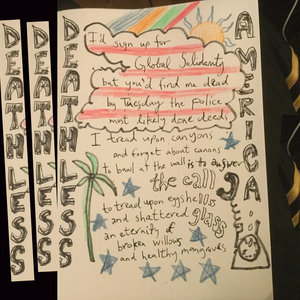 DEATHLESS
DEATHLESS
DEATHLESS
AMERICA
I'd sign up for
Global Solidarity
but you'd find me dead
by Tuesday the police
most likely done deeds
I tread upon canyons
and forget about canons
to bawl at the wall is to answer
the call
to tread upon eggshells
and shattered glass
an eternity of
broken willows
and healthy mangroves